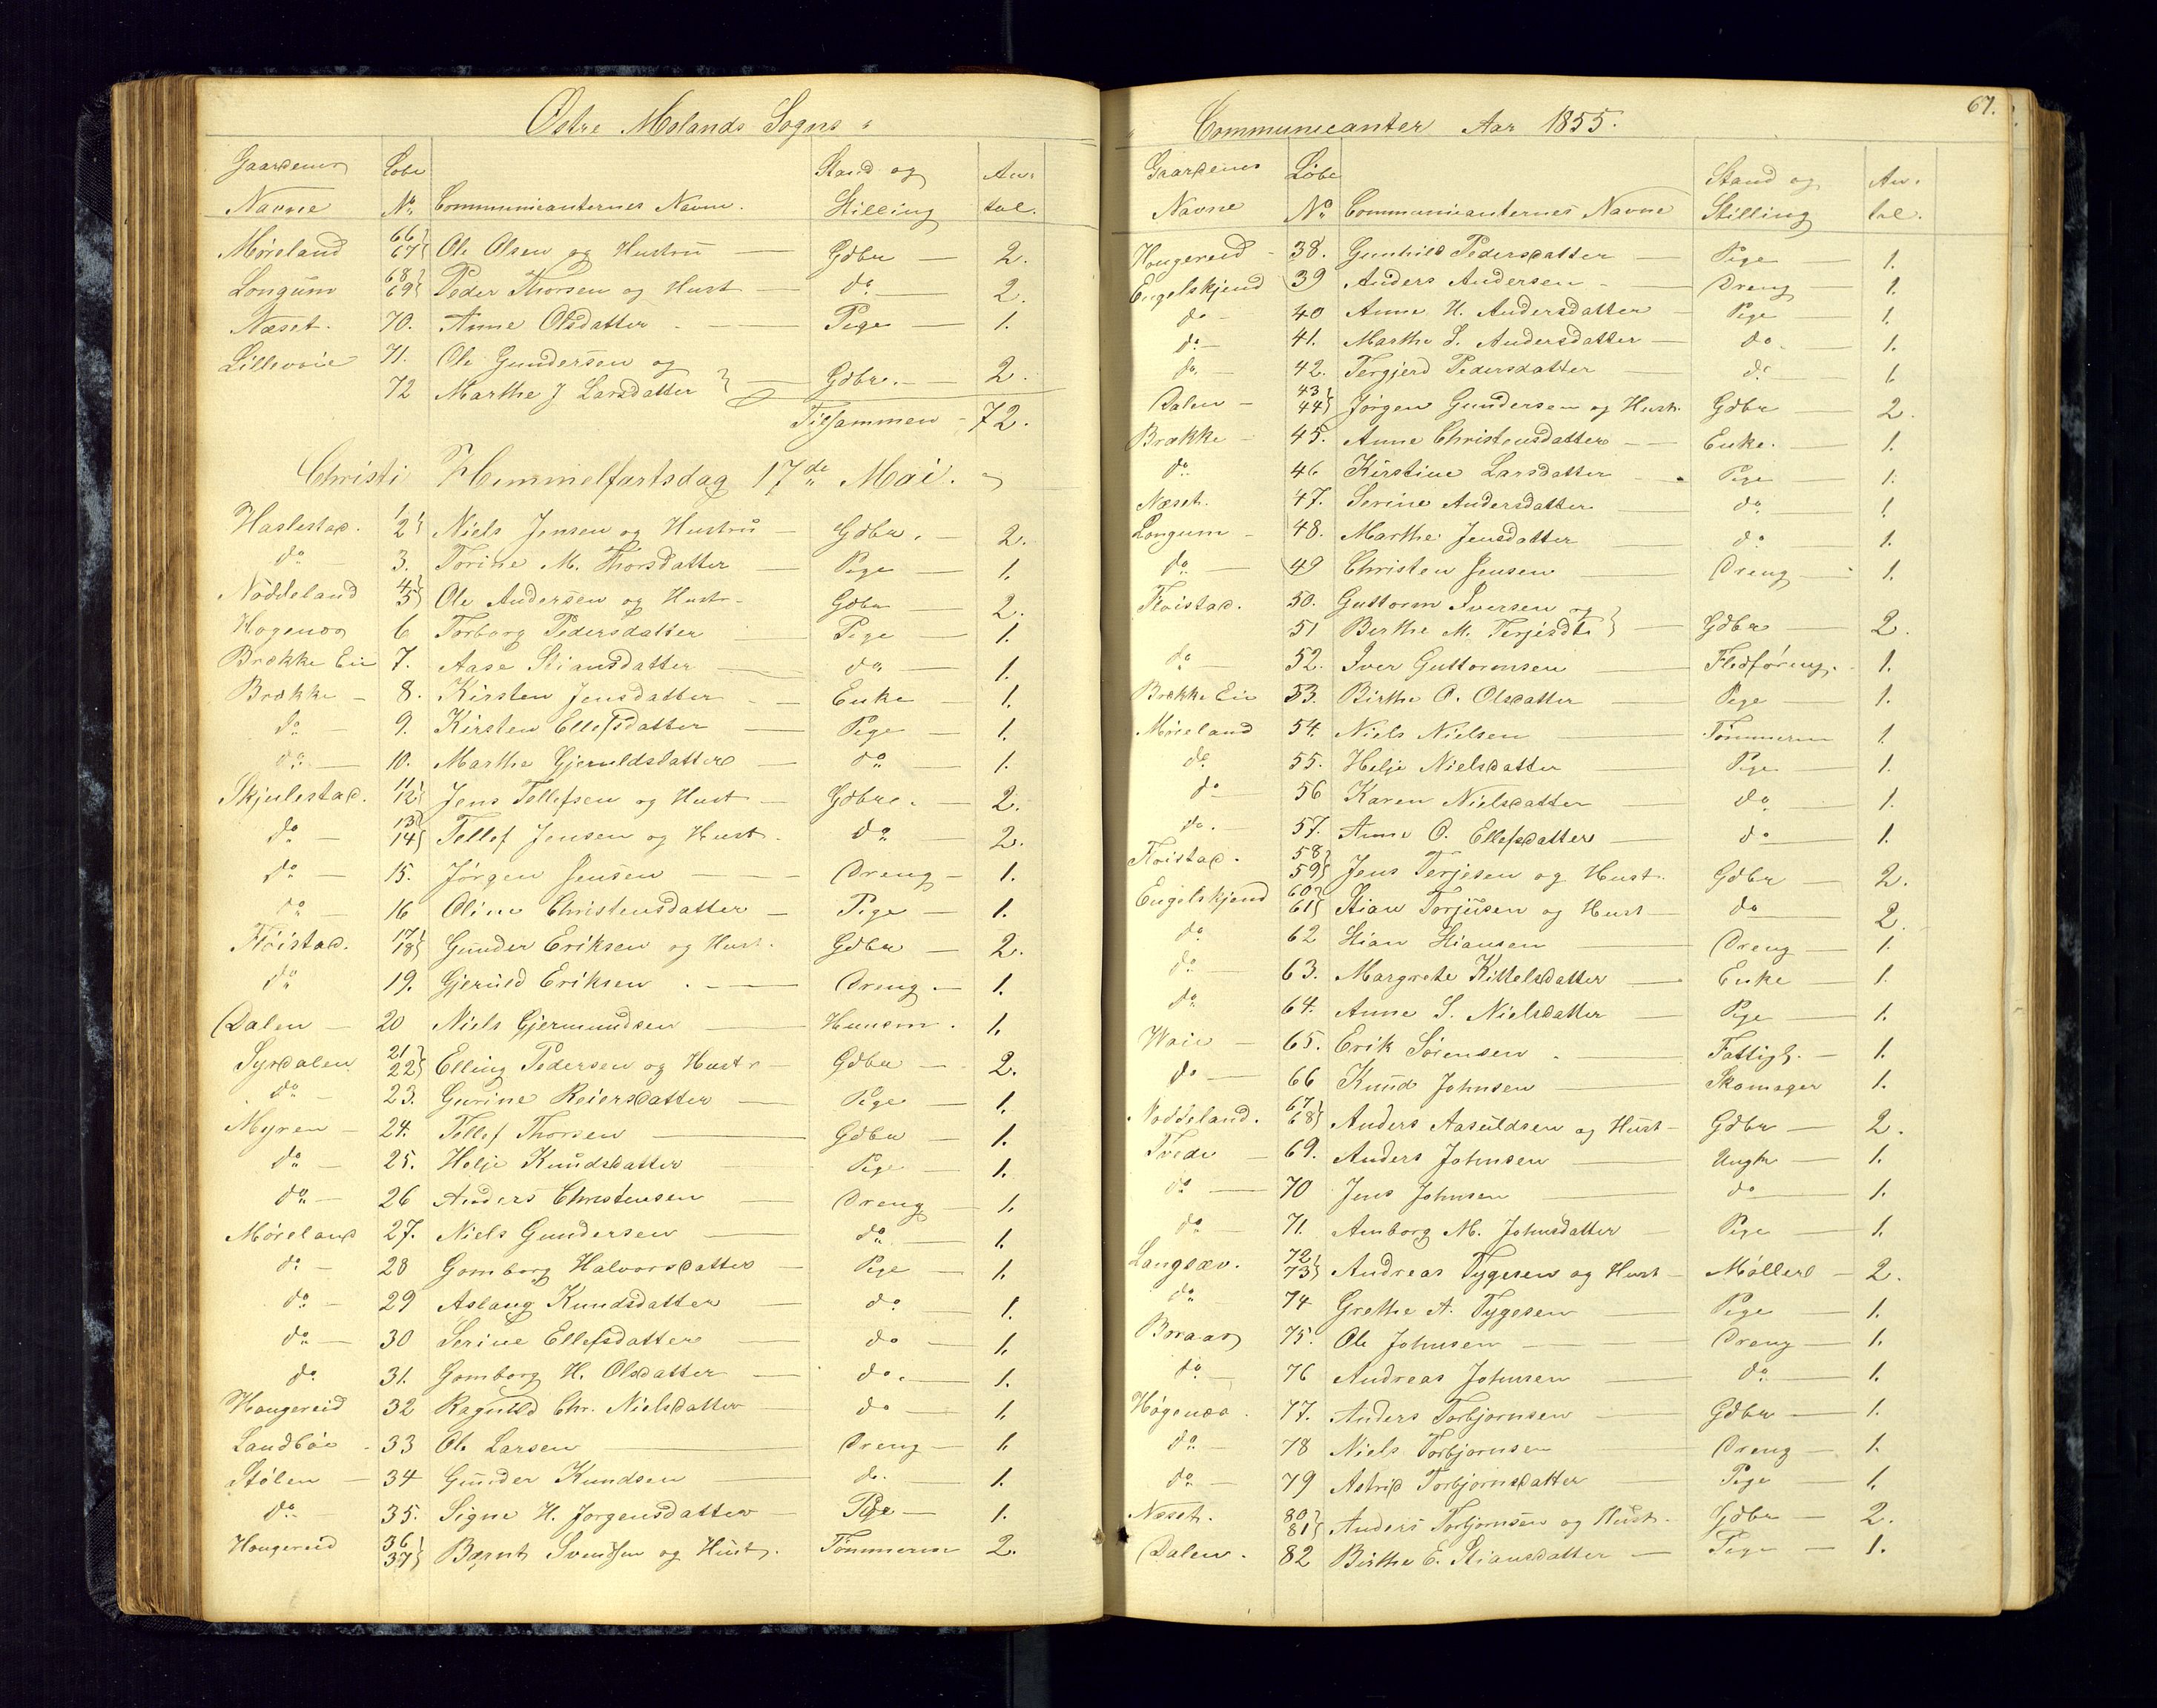 Østre Molands Sogns
Gaardenes Navne | Löbe No. | Communicanternes Navne. | Stand og Stilling | Antal.
Møreland 66 67 Ole Olsen og Hustru Gdbr 2.
Longum 68 69 Peder Thorsen og Hust do 2.
Næset. 70. Anne Olsdatter Pige 1.
Lilleveie 71. Ole Gundersen og
72 Marthe J Larsdatter Gdbr. 2.
Tilsammen 72.
Christi Himmelfartsdag 17de Mai.
Haslestad. 1 2 Niels Jensen og Hustru Gdbr. 2.
do 3. Torine M. Thorsdatter Pige 1.
Nöddeland 4 5 Ole Andersen og Hustr. Gdbr 2.
Hogenæs 6 Torborg Pedersdatter Pige 1.
Brække Eie 7. Aase Stiansdatter do 1.
Brække 8. Kirsten Jensdatter Enke 1.
do 9. Kirsten Ellefsdatter Pige 1.
do 10. Marthe Gjeruldsdatter do 1.
Skjulestad. 11 12 Jens Tellefsen og Hust Gdbr. 2.
do 13 14 Tellef Jensen og Hust. do 2.
do 15. Jörgen Jensen Dreng 1.
do 16 Oline Christensdatter Pige 1.
Flöistad. 17 18 Gunder Eriksen og Hust. Gdbr 2.
do 19. Gjeruld Eriksen Dreng. 1.
Dalen 20 Niels Gjermundsen Huusm. 1.
Syrdalen 21 22 Elling Pedersen og Hustr Gdbr 2.
do 23. Gurine Reiersdatter Pige 1.
Myren 24. Tellef Thorsen Gdbr 1.
do 25. Helje Knudsdatter Pige 1.
do 26 Anders Christensen Dreng 1.
Møreland 27. Niels Gundersen do 1.
do 28 Gomborg Halvorsdatter Pige 1.
do 29 Aslaug Knudsdatter do 1.
do 30 Serine Ellefsdatter do 1.
do 31. Gomborg H. Olsdatter do. 1.
Hougereid 32 Raguild Chr. Nielsdatter do 1.
Landböe 33 Ole Larsen Dreng 1.
Stölen 34 Gunder Knudsen do. 1.
do 35. Signe H. Jorgensdatter Pige 1.
Hougereid 36 37 Bærnt Svendsen og Hust. Tömmerm 2.
Communicanter Aar 1855.
67.
Gaardenes Navne | Löbe No | Communicanternes Navne | Stand og Stilling | Antal.
Hougereid 38. Gunhild Pedersdatter Pige 1.
Engelskjend 39 Anders Andersen Dreng 1.
do 40 Anne H. Andersdatter Pige 1.
do 41. Marthe S. Andersdatter do. 1.
do. 42. Tergjerd Pedersdatter do 1.
Dalen 43 44 Jörgen Gundersen og Hustr. Gdbr 2.
Brække 45. Anne Christensdatter Enke. 1.
do 46 Kirstine Larsdatter Pige 1.
Næset. 47. Serine Andersdatter do 1.
Longum 48. Marthe Jensdatter do 1.
do 49 Christen Jensen Dreng 1.
Flöistad. 50. Guttorm Iversen og
51 Berthe M. Terjesdt. Gdbr 2.
do 52. Iver Guttormsen Fledföring. 1.
Brække Eie 53. Birthe O. Olsdatter Pige 1.
Møreland 54. Niels Nielsen Tömmerm 1.
do 55. Helje Nielsdatter Pige 1.
do 56 Karen Nielsdatter do. 1.
do. 57. Anne O. Ellefsdatter do 1.
Flöistad. 58 59 Jens Terjesen og Hust. Gdbr 2.
Engelskjend 60 61 Stian Torjusen og Hust do 2.
do 62 Stian Stiansen Dreng 1.
do 63. Margrete Kittelsdatter Enke 1.
do 64. Anne S. Nielsdatter Pige 1.
Waie 65. Erik Sörensen Fattigl. 1.
do 66 Knud Johnsen Skomager 1.
Noddeland. 67 68 Anders Aasuldsen og Hust Gdbr 2.
Tvede 69. Anders Johnsen Ungk 1.
do 70 Jens Johnsen do 1.
do 71. Amborg M. Johnsdatter Pige 1.
Langsæv. 72 73 Andreas Tygesen og Hust Möller 2.
do 74 Grethe A. Tygesen Pige 1.
Boraas 75. Ole Johnsen Dreng 1.
do 76 Andreas Johnsen do 1.
Högenæs. 77. Anders Torbjornsen Gdbr 1.
do 78 Niels Torbjornsen Dreng 1.
do 79 Astrid Torbjornsdatter Pige 1.
Næset. 80 81 Anders Torbjornsen og Hust. Gdbr 2.
Dalen. 82 Birthe E. Stiansdatter Pige 1.